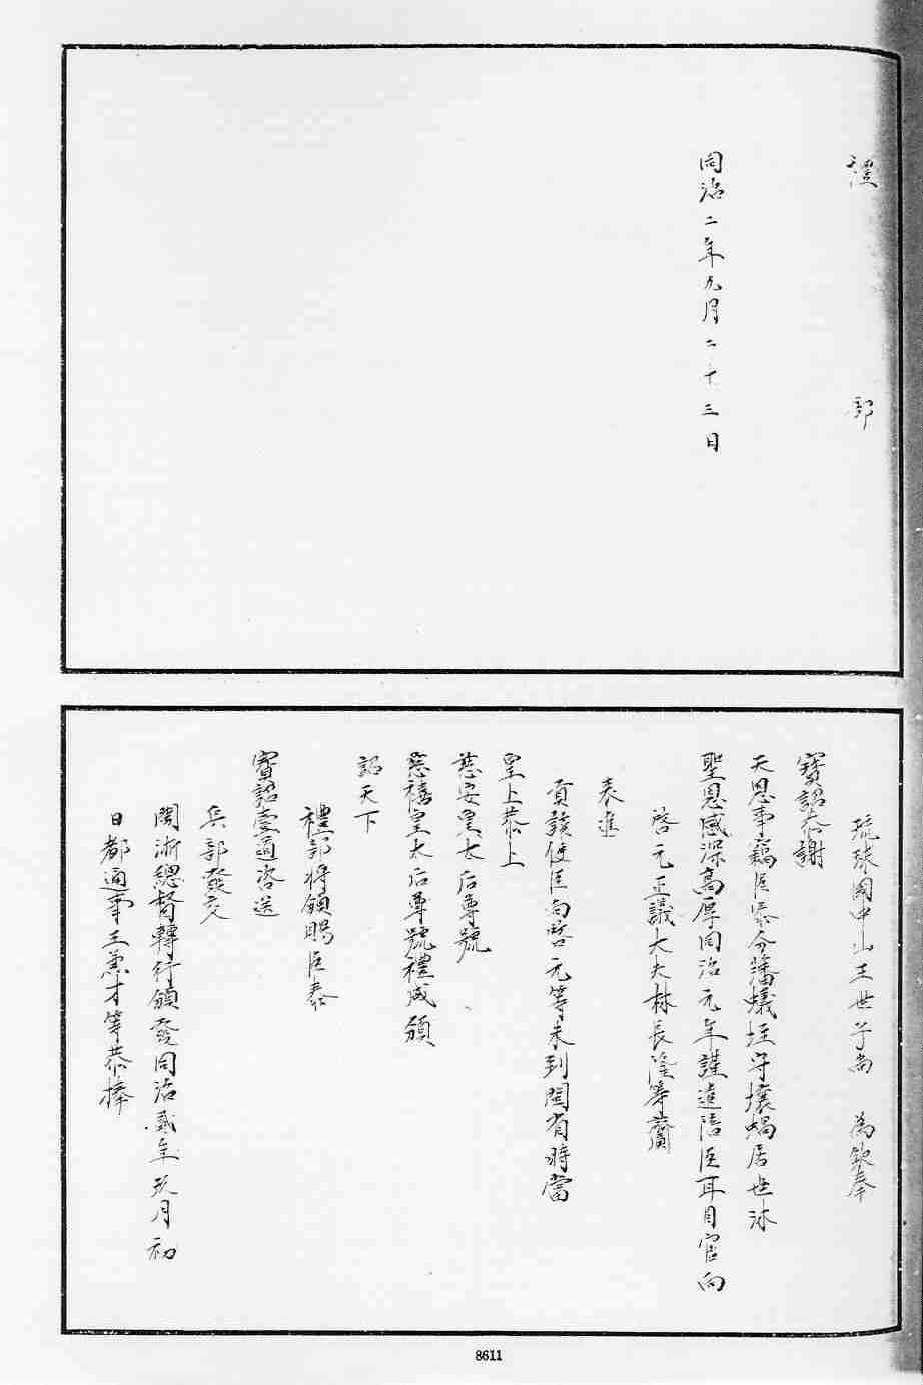 禮部
同治二年九月二十三日
琉球國中山王世子尚 為欽奉
寶詔恭謝
天恩事竊臣泰分藩蟻垤守壤蝸居世沐
聖恩感深高厚同治元年謹遣陪臣耳目官向
啓元正議大夫林長隆等齎
表進
貢該使臣向啓元等未到閩省時當
皇上恭上
慈安皇太后尊號
慈禧皇太后尊號禮成頒
詔天下
禮部將頒賜臣泰
寶詔壹通咨送
兵部發交
閩浙總督轉行頒發同治貳年玖月初
日都通事王兼才等恭捧
8611